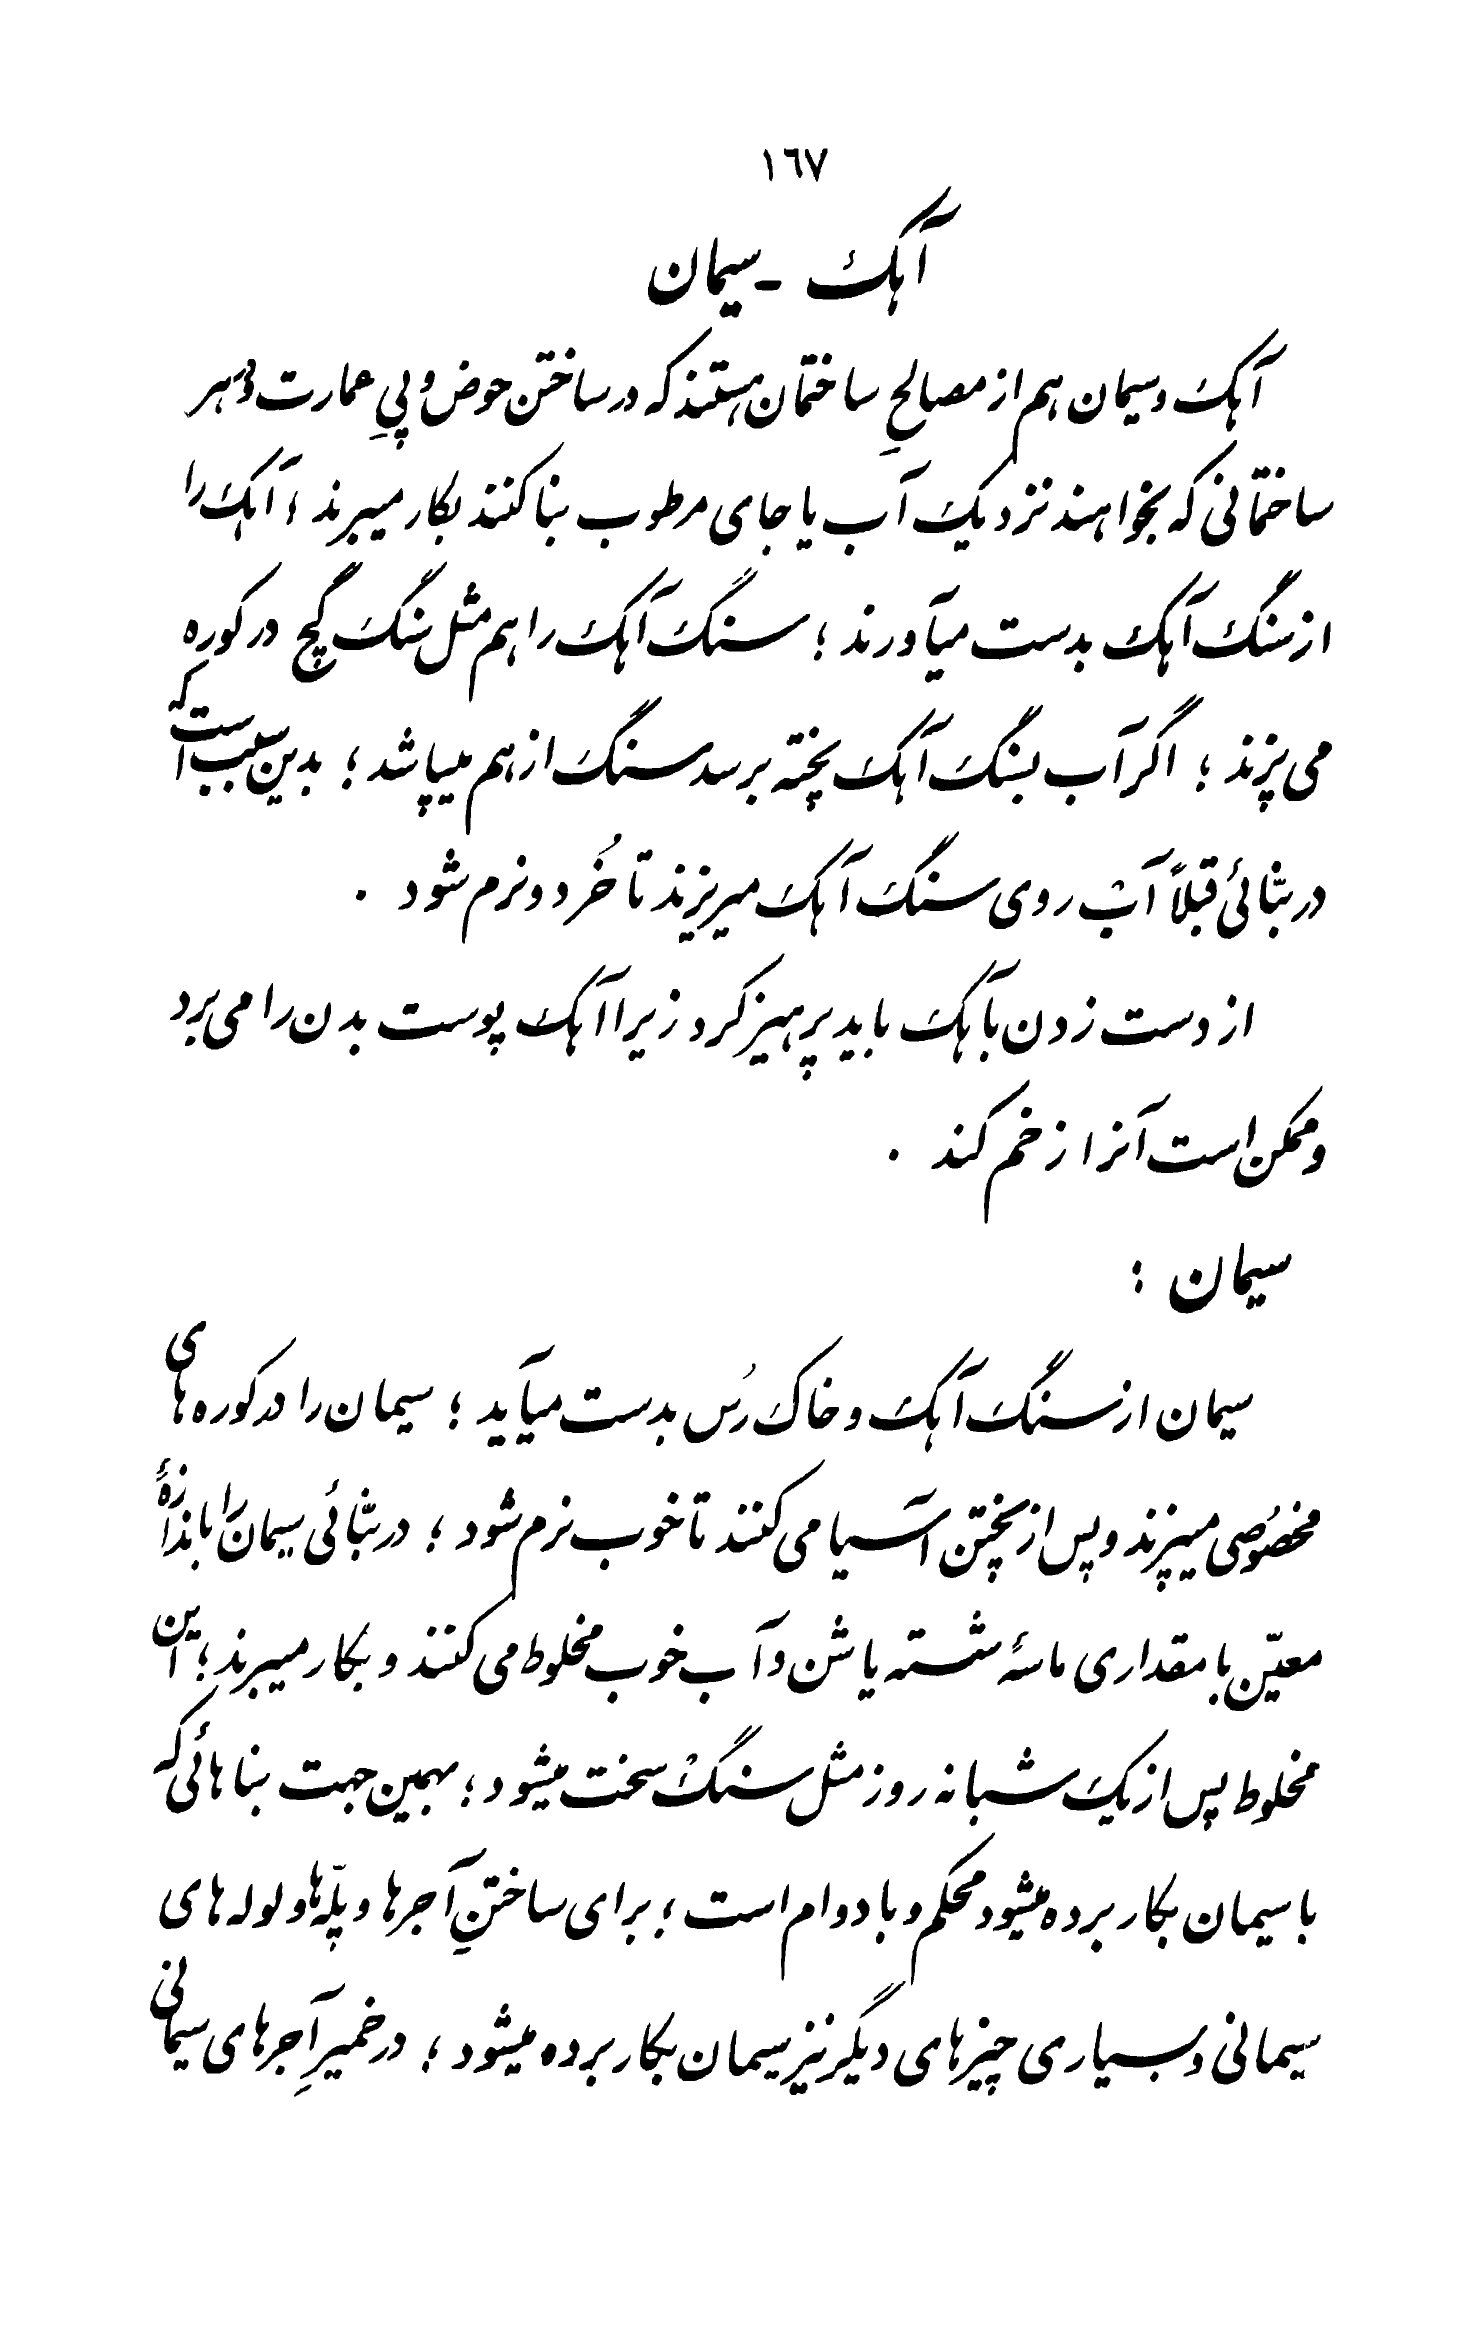 ١٦٧
آهک - سیمان
آهک و سیمان هم از مصالحِ ساختمان هستند که در ساختن حوض و پیِ عمارت و هر
ساختمانی که بخواهند نزدیک آب یا جای مرطوب بنا کنند بکار میبرند ؛ آهک را
از سنگ آهک بدست میآورند ؛ سنگ آهک را هم مثل سنگ گچ در کوره
می پزند ؛ اگر آب بسنگ آهک پخته برسد سنگ از هم میپاشد ؛ بدین سبب است که
در بنّائی قبلاً آب روی سنگ آهک میریزند تا خُرد و نرم شود .
از دست زدن بآهک باید پرهیز کرد زیرا آهک پوست بدن را می برد
و ممکن است آنرا زخم کند .
سیمان :
سیمان از سنگ آهک و خاک رُس بدست میآید ؛ سیمان را در کوره های
مخصُوصی میپزند و پس از پختن آسیا می کنند تا خوب نرم شود ؛ در بنّائی سیمان را باندازهٔ
معیّن با مقداری ماسهٔ شسته یا شن و آب خوب مخلوط می کنند و بکار میبرند ؛ این
مخلوط پس از یک شبانه روز مثل سنگ سخت میشود ؛ بهمین جهت بناهائی که
با سیمان بکار برده میشود محکم و با دوام است ؛ برای ساختنِ آجرها و پلّه‌ها و لوله های
سیمانی و بسیاری چیزهای دیگر نیز سیمان بکار برده میشود ؛ در خمیرِ آجرهای سیمانی